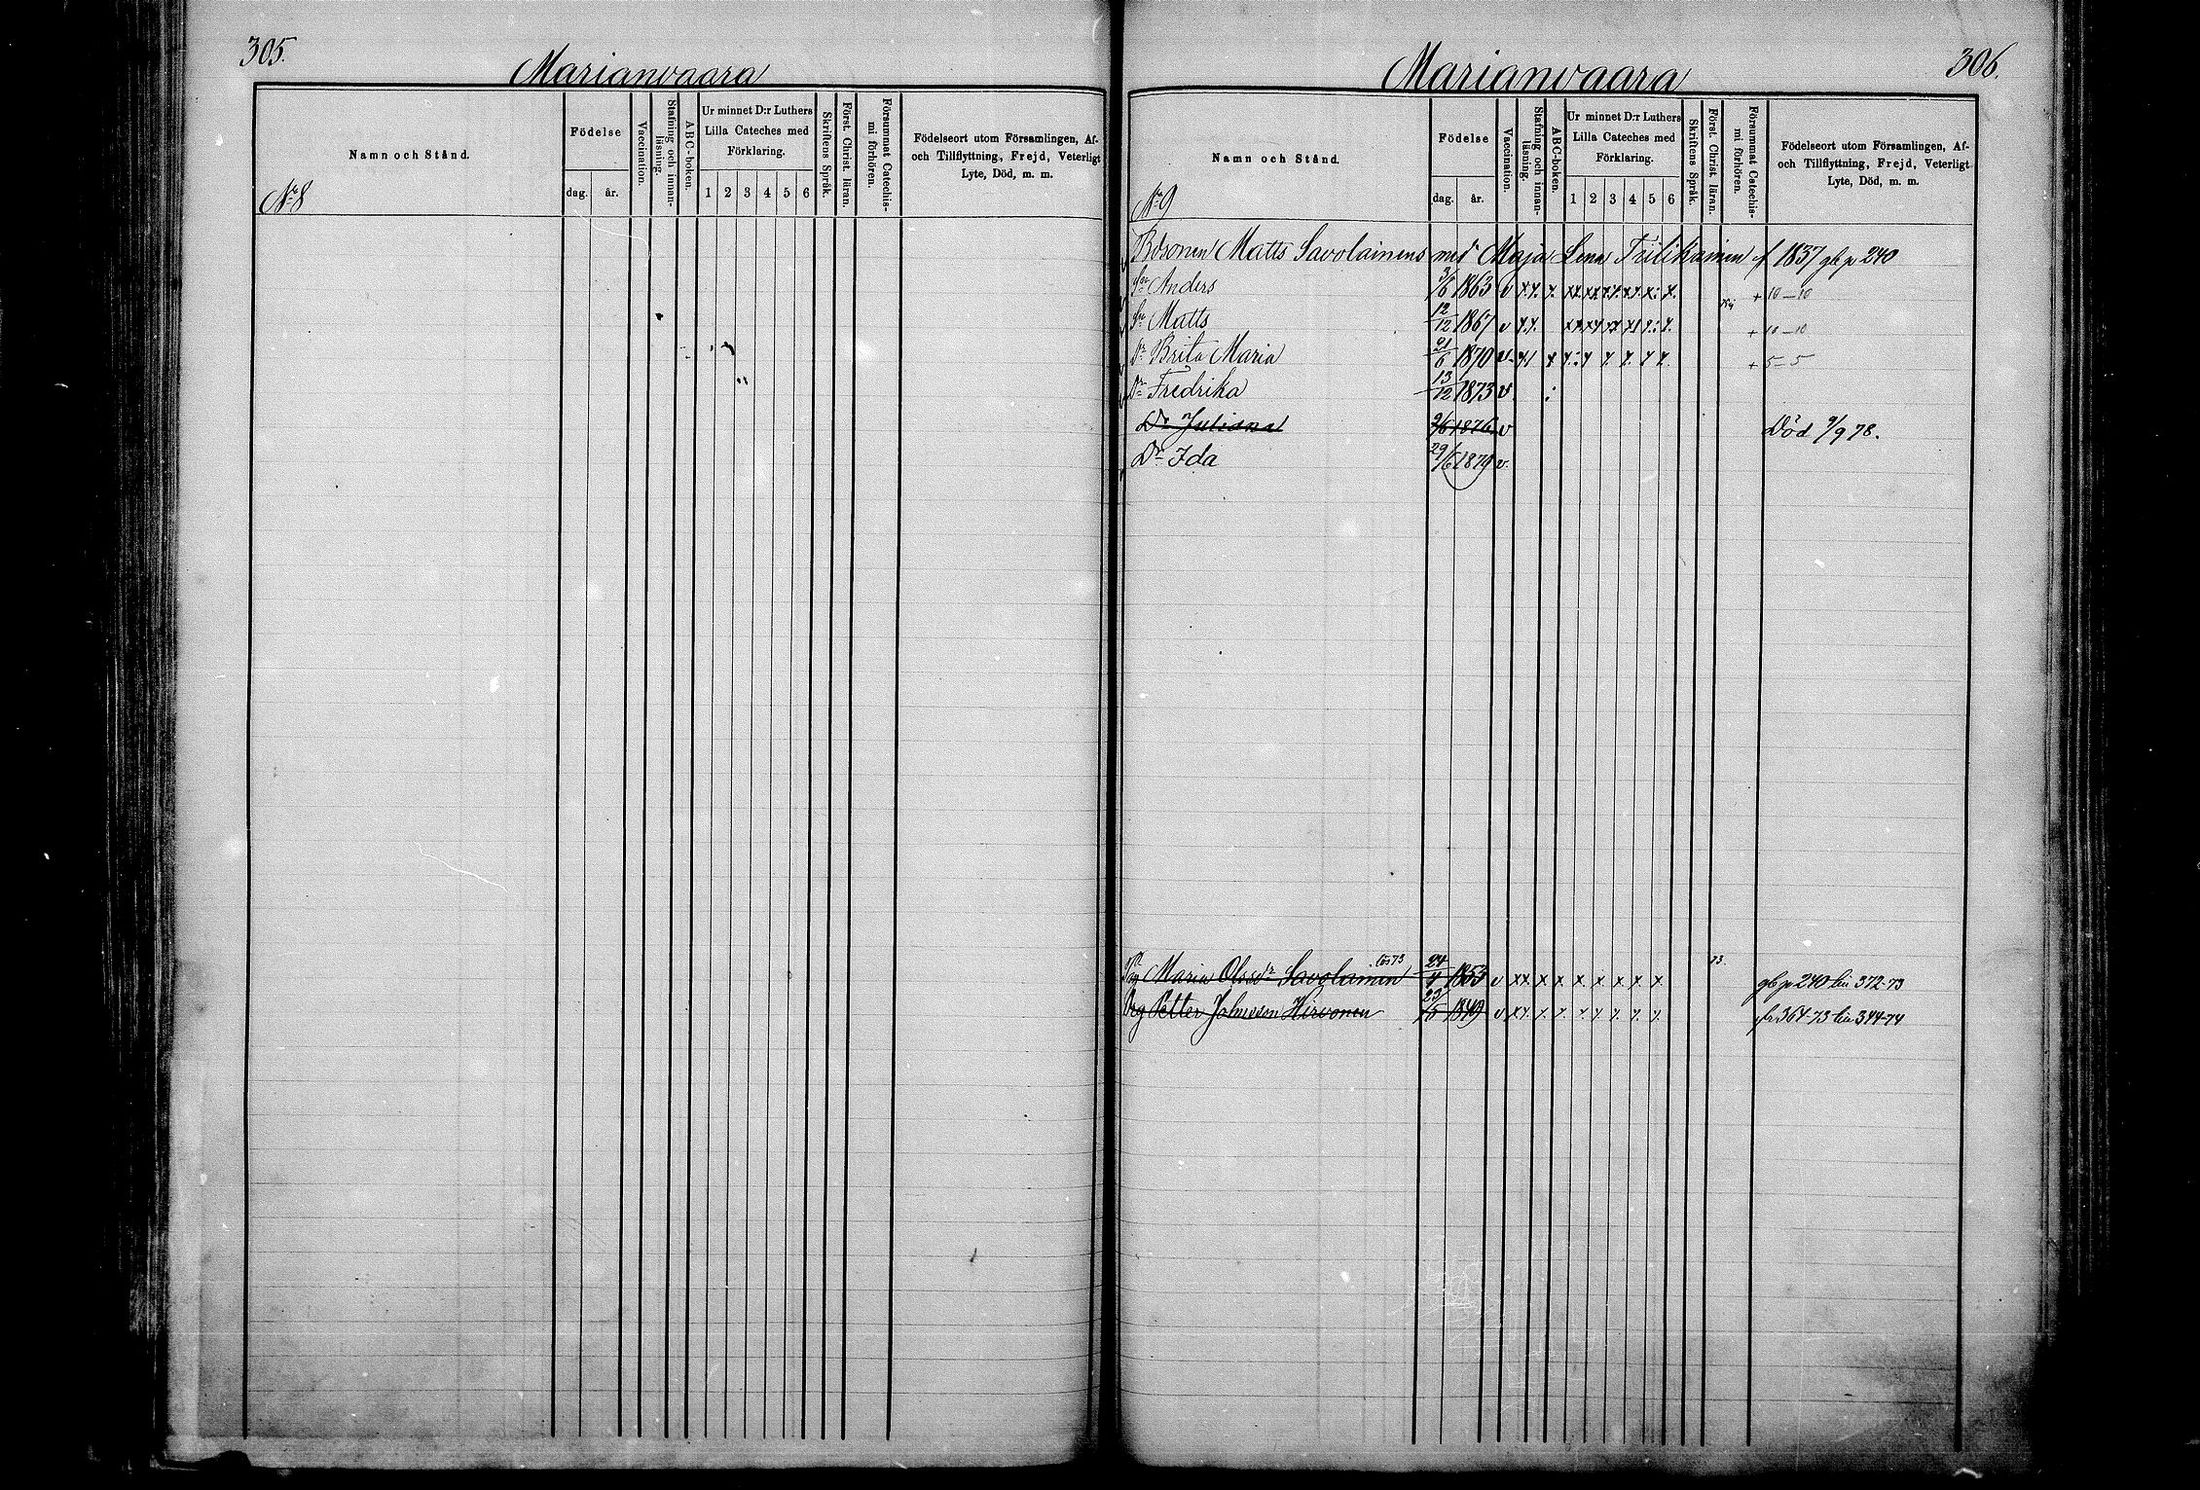 305.
Marianvaara
Namn och Stånd.
Födelse
dag. år.
Vaccination.
Stafning och innan-läsning.
ABC-boken.
Ur minnet D:r Luthers
Lilla Cateches med
Förklaring.
1 2 3 4 5 6
Skriftens Språk.
Först. Christ. läran.
Försummat Catechis-mi förhören.
Födelseort utom Församlingen, Af-
och Tillflyttning, Frejd, Veterligt
Lyte, Död, m. m.
No 8
306.
Marianvaara
Namn och Stånd.
Födelse
dag. år.
Vaccination.
Stafning och innan-läsning.
ABC-boken.
Ur minnet D:r Luthers
Lilla Cateches med
Förklaring.
1 2 3 4 5 6
Skriftens Språk.
Först. Christ. läran.
Försummat Catechis-mi förhören.
Födelseort utom Församlingen, Af-
och Tillflyttning, Frejd, Veterligt
Lyte, Död, m. m.
No 9
Matts Savolainens med Maja Lena f 1837 gb p 240
Sn Anders 3/6 1863 v + 10-10
Sn Matts 12/12 1867 v + 10-10
Dr Brita Maria 21/6 1870 v + 5-5
Dr Fredrika 13/12 1873 v
Dr Juliana 9/6 1876 v Död 9/9 78.
Dr Ida 29/6 1879 v.
Maria Olsdr Savolainen 24/4 1853 v x x x x x x x x x 73 gb p 240 372-73
Drg Petter Johansson Hirvonen 23/5 1849 v fr 364-73 344-74